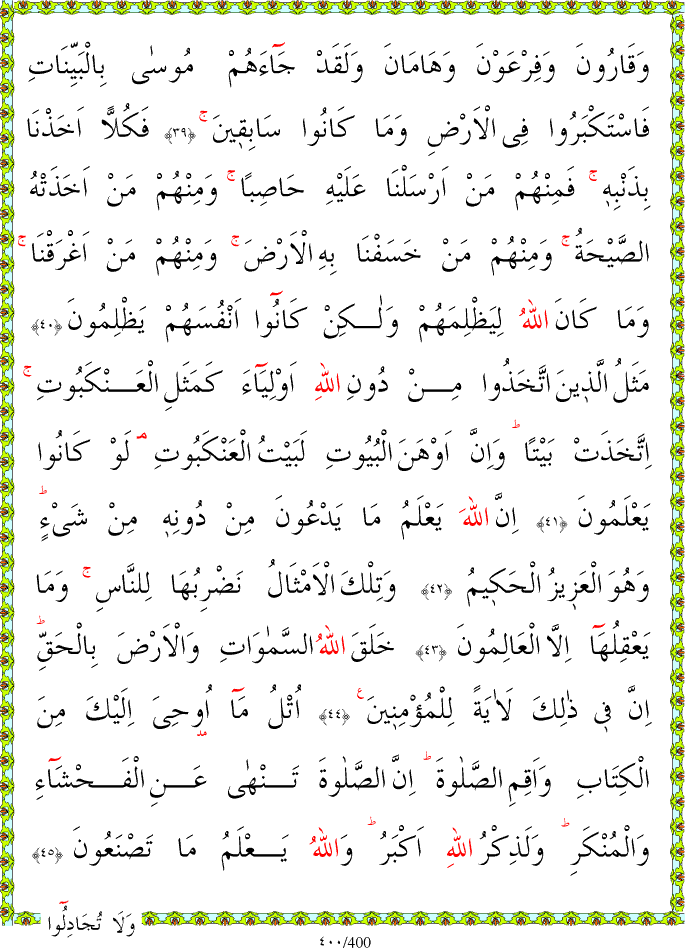 وَقَارُونَ وَفِرْعَوْنَ وَهَامَانَ وَلَقَدْ جَٓاءَهُمْ مُوسٰى بِالْبَيِّنَاتِ
فَاسْتَكْبَرُوا فِى الْاَرْضِ وَمَا كَانُوا سَابِقٖينَۚ ﴿٣٩﴾ فَكُلًّا اَخَذْنَا
بِذَنْبِهٖۚ فَمِنْهُمْ مَنْ اَرْسَلْنَا عَلَيْهِ حَاصِبًاۚ وَمِنْهُمْ مَنْ اَخَذَتْهُ
الصَّيْحَةُۚ وَمِنْهُمْ مَنْ خَسَفْنَا بِهِ الْاَرْضَۚ وَمِنْهُمْ مَنْ اَغْرَقْنَاۚ
وَمَا كَانَ اللّٰهُ لِيَظْلِمَهُمْ وَلٰكِنْ كَانُٓوا اَنْفُسَهُمْ يَظْلِمُونَ ﴿٤٠﴾
مَثَلُ الَّذٖينَ اتَّخَذُوا مِنْ دُونِ اللّٰهِ اَوْلِيَٓاءَ كَمَثَلِ الْعَنْكَبُوتِۚ
اِتَّخَذَتْ بَيْتًاؕ وَاِنَّ اَوْهَنَ الْبُيُوتِ لَبَيْتُ الْعَنْكَبُوتِۢ لَوْ كَانُوا
يَعْلَمُونَ ﴿٤١﴾ اِنَّ اللّٰهَ يَعْلَمُ مَا يَدْعُونَ مِنْ دُونِهٖ مِنْ شَیْءٍؕ
وَهُوَ الْعَزٖيزُ الْحَكٖيمُ ﴿٤٢﴾ وَتِلْكَ الْاَمْثَالُ نَضْرِبُهَا لِلنَّاسِۚ وَمَا
يَعْقِلُهَٓا اِلَّا الْعَالِمُونَ ﴿٤٣﴾ خَلَقَ اللّٰهُ السَّمٰوَاتِ وَالْاَرْضَ بِالْحَقِّؕ
اِنَّ فٖى ذٰلِكَ لَاٰيَةً لِلْمُؤْمِنٖينَࣖ ﴿٤٤﴾ اُتْلُ مَٓا اُوحِیَ اِلَيْكَ مِنَ
الْكِتَابِ وَاَقِمِ الصَّلٰوةَؕ اِنَّ الصَّلٰوةَ تَنْهٰى عَنِ الْفَحْشَٓاءِ
وَالْمُنْكَرِؕ وَلَذِكْرُ اللّٰهِ اَكْبَرُؕ وَاللّٰهُ يَعْلَمُ مَا تَصْنَعُونَ ﴿٤٥﴾
وَلَا تُجَادِلُٓوا
٤٠٠/400